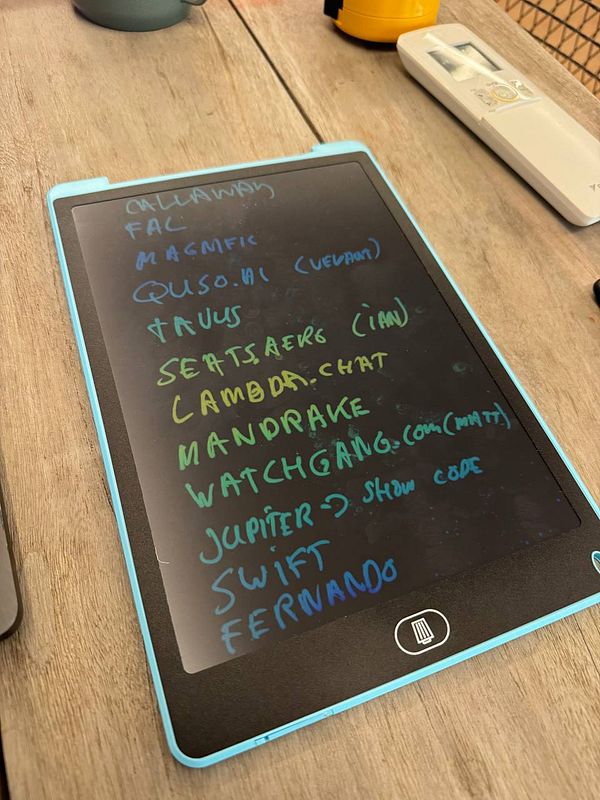 CALLAWAY
FAL
MAGNIFIC
QUSO.AI (VEDANT)
tAVUS
SEATS.AERO (iAN)
LAMBDA.CHAT
MANDRAKE
WATCHGANG.COM (MATT)
JUPITER -> SHOW CODE
SWIFT
FERNANDO